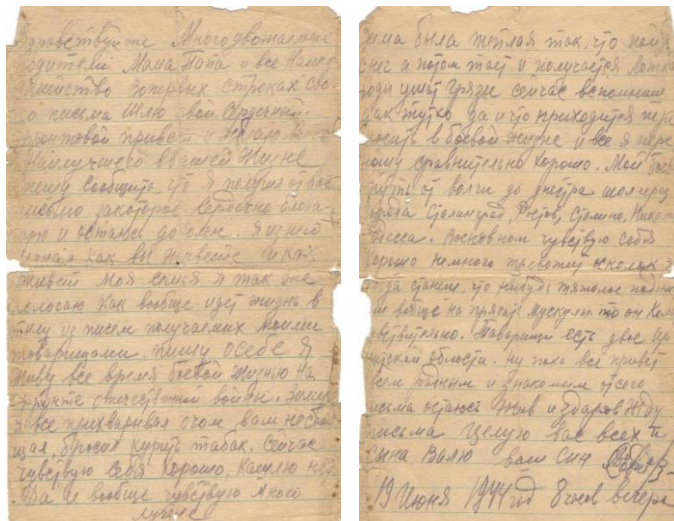 Здравствуйте Многоуважаемые
родители Мама Папа и все наше
семейство Вопервых строках сво
го письма Шлю вой Сердечный
фронтовой привет и Желаю вам
Наилучшего в вашей Жизне
пишу сообщить, что я получил от вас
письмо закоторое Сердечно благо
рю и остаюсь до
как вы живете и как
живет Моя семья я так же
пологаю Как вообще идет жизнь в
тылу из писем получаемых моими
товарищами. пишу осебе я
живу все время боевой жизнью на
фронте отечественной войны. Зиму
все прихварывал очом вам несооб
щал, бросил курить табак. Сейчас
чувствую себя хорошо, Кашлю нет
Да и вообще чувствую много
лучше
зима была теплая так, что
снег а потом тает и получается
воды ушат грязи сейчас вспомниш
так жутко да и что приходится пере
носить в боевой жизне и все я пере
ношу сравнительно хорошо. Мой боев
путь от волги до днестра шол через
города Сталинград, Ростов, Сталино, Никол
Одесса. Восновном чувствую себя
хорошо немного тревожит осколок
когда станеш, что нибудь тяжолое
или вобще на прягать мускулы то он
Товарищи есть двое
области. ну пока все привет
всем родным и знакомым отсего
письма остаюсь Жив и здаров Жду
письма Целую вас всех и
сына Валю ваш син
19 Июня 1944 год 8 часов вечера